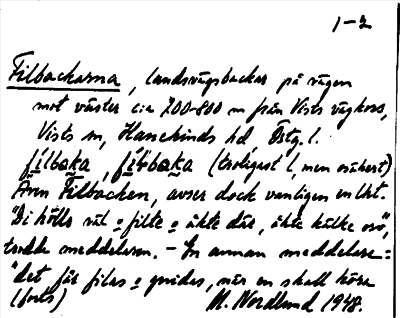 1-2
Filbackarna, landsvägsbackar på vägen
mot väster c:a 700-800 m från Vists vägkors,
Vists sn, Hanekinds hd Östg. l.
fílbaka, fílbaka (troligast l, men osäkert)
Även Filbacken, avser dock vanligen en likt.
"Di hölls väl o filte o åkte där, åkte kälke osv",
trodde meddelaren. - En annan meddelare:
"det får filas o gnidas, när en skall köra
(forts) M. Nordlund 1948.